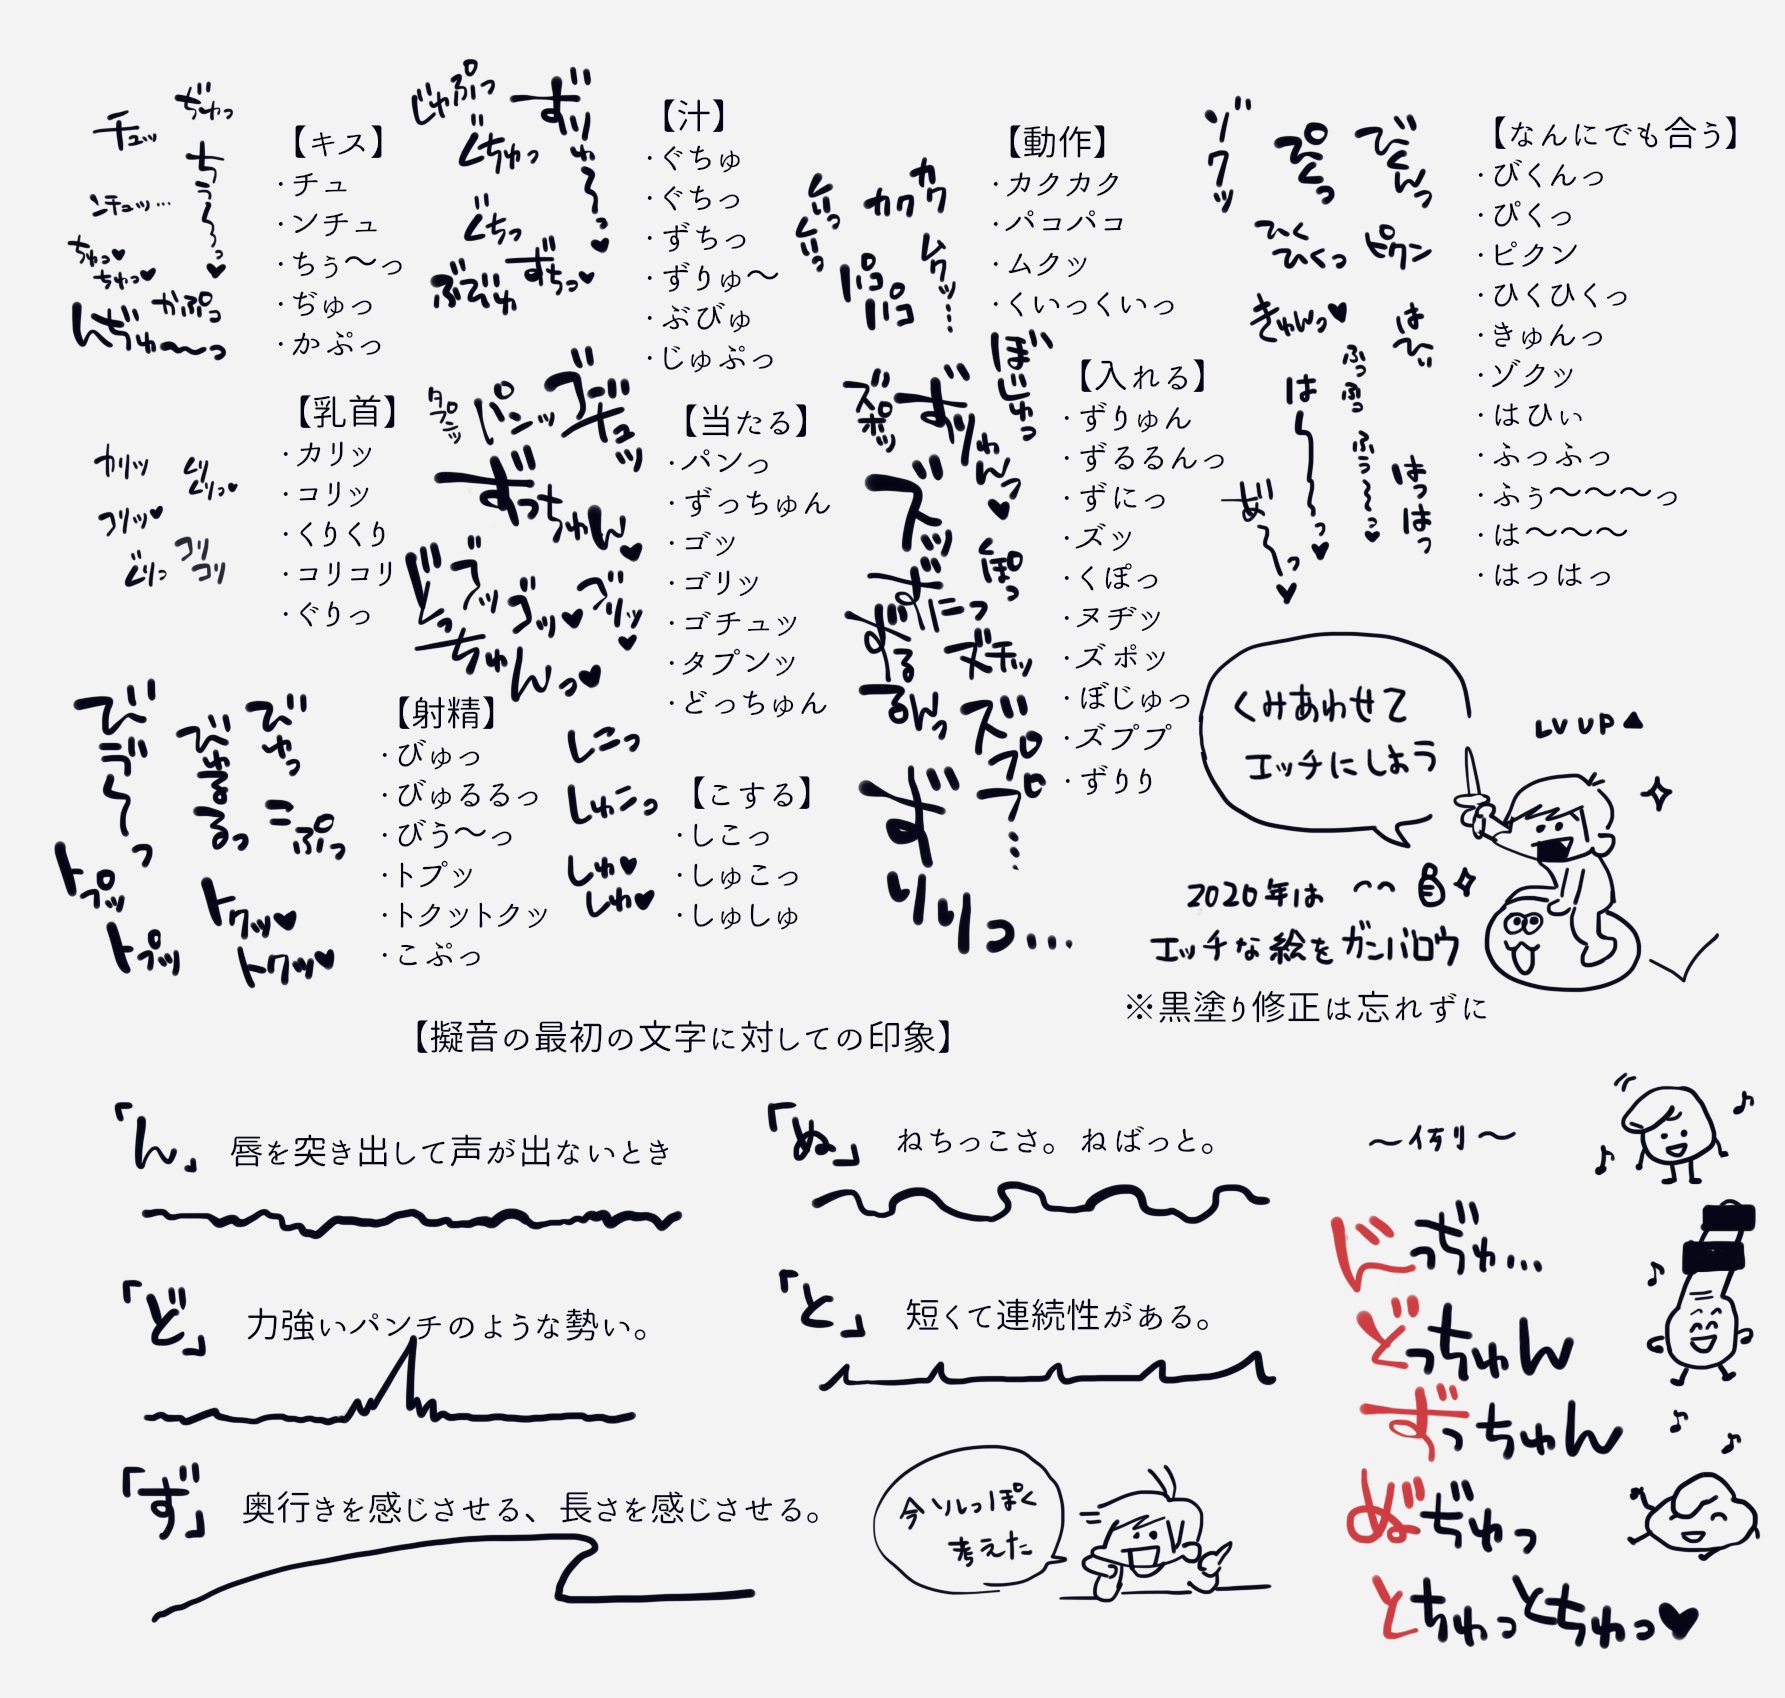 チュッ
ぢゅっ
ちぅ～っ♥
ンチュッ…
ちゅっ♥
ちゅっ♥
かぷっ
んぢゅ～っ
【キス】
・チュ
・ンチュ
・ちぅ～っ
・ぢゅっ
・かぷっ
じゅぷっ
ぐちゅっ
ぐちっ
ぶびゅ
ずちっ♥
ずりゅ～っ♥
【汁】
・ぐちゅ
・ぐちっ
・ずちっ
・ずりゅ～
・ぶびゅ
・じゅぷっ
くいっ
くいっ
カク
カク
パコ
パコ
ムクッ…
【動作】
・カクカク
・パコパコ
・ムクッ
・くいっくいっ
ゾクッ
ぴくっ
びくんっ
ひく
ひくっ
ピクン
きゅんっ♥
はひぃ
ふっ
ふっ
は～っ♥
ふぅ～っ♥
はっ
はっ
あ゛～っ♥
【なんにでも合う】
・びくんっ
・ぴくっ
・ピクン
・ひくひくっ
・きゅんっ
・ゾクッ
・はひぃ
・ふっふっ
・ふぅ～～～っ
・は～～～
・はっはっ
カリッ
くり
くりっ♥
コリッ♥
コリ
コリ
ぐりっ
【乳首】
・カリッ
・コリッ
・くりくり
・コリコリ
・ぐりっ
タプンッ
パンッ
ゴチュッ
ずっちゅん♥
どっちゅんっ♥
ゴッ
ゴッ♥
ゴリッ♥
【当たる】
・パンっ
・ずっちゅん
・ゴッ
・ゴリッ
・ゴチュッ
・タプンッ
・どっちゅん
ズポッ
ずりゅんっ♥
ぼじゅっ
ズッ
くぽっ
ずにっ
ずるるんっ
ヌヂッ
ズププ…
ずりりっ…
【入れる】
・ずりゅん
・ずるるんっ
・ずにっ
・ズッ
・くぽっ
・ヌヂッ
・ズポッ
・ぼじゅっ
・ズププ
・ずりり
びゅるるっ
びゅっ
こぷっ
トプッ
トプッ
トクッ♥
トクッ♥
【射精】
・びゅっ
・びゅるるっ
・びう～っ
・トプッ
・トクットクッ
・こぷっ
しこっ
しゅこっ
しゅ♥
しゅ♥
【こする】
・しこっ
・しゅこっ
・しゅしゅ
くみあわせて
エッチにしよう
LV UP▲
2020年は
エッチな絵をガンバロウ
※黒塗り修正は忘れずに
【擬音の最初の文字に対しての印象】
「ん」 唇を突き出して声が出ないとき
「ど」 力強いパンチのような勢い。
「ず」 奥行きを感じさせる、長さを感じさせる。
「ぬ」 ねちっこさ。ねばっと。
「と」 短くて連続性がある。
今ソレっぽく
考えた
～例～
ん゛っぢゅ…
どっちゅん
ずっちゅん
ぬ゛ぢゅっ
とちゅっとちゅっ♥